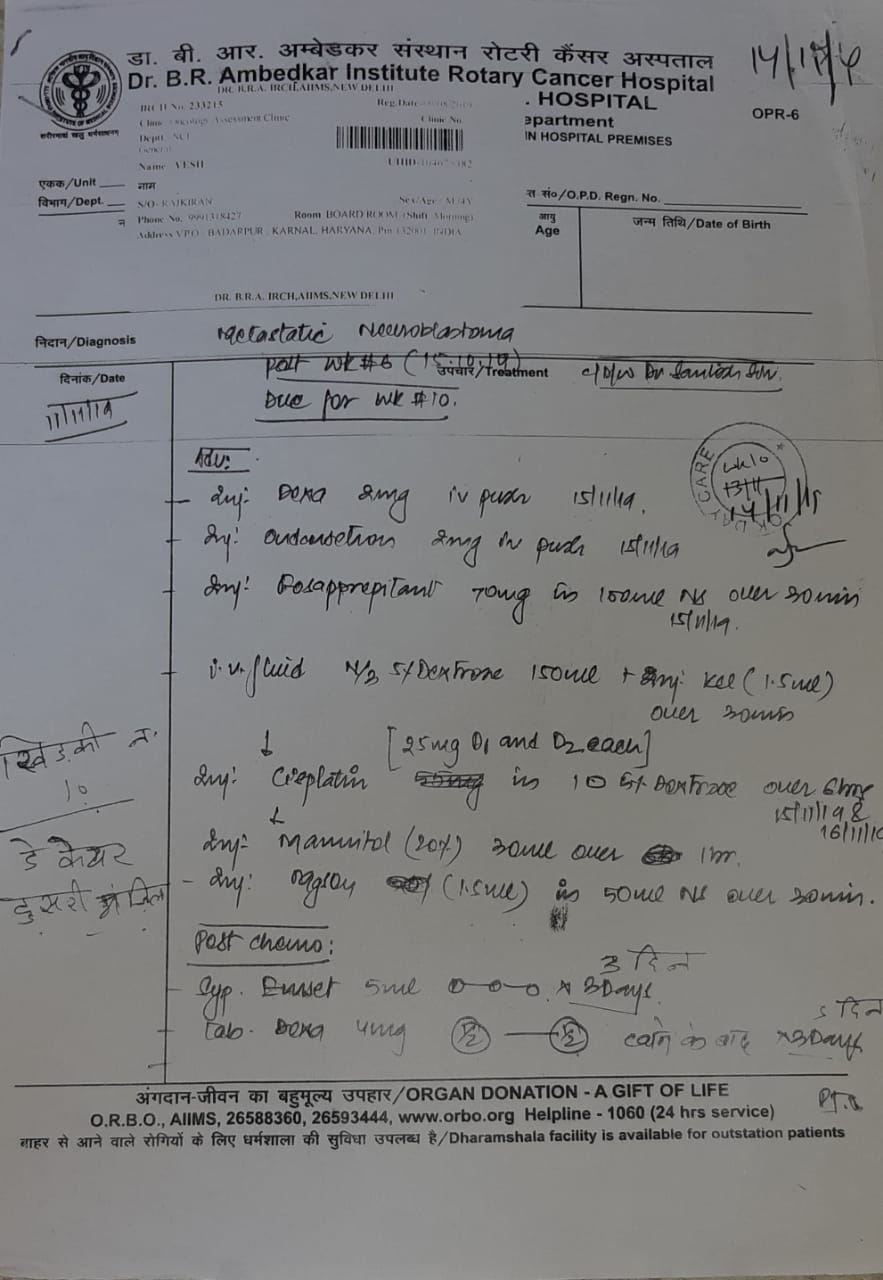 डा. बी. आर. अम्बेडकर संस्थान रोटरी कैंसर अस्पताल
Dr. B.R. Ambedkar Institute Rotary Cancer Hospital
DR. B.R.A. IRCH,AIIMS,NEW DELHI
. HOSPITAL
OPR-6
IRCH No. 233215
Reg.Date
epartment
Clinic Oncology Assessment Clinic
Clinic No.
IN HOSPITAL PREMISES
Deptt.
शरीरमाद्यं खलु धर्मसाधनम्
General
Name
UHID
एकक/Unit
नाम
विभाग/Dept.
S/O- RAJKIRAN
Sex/Age
त सं०/O.P.D. Regn. No.
न
Phone No. 9991318427
Room BOARD ROOM (Shift Morning)
आयु
Age
जन्म तिथि/Date of Birth
Address VPO BADARPUR, KARNAL, HARYANA, Pin 132001 INDIA
DR. B.R.A. IRCH,AIIMS,NEW DELHI
निदान/Diagnosis
Metastatic Neuroblastoma
दिनांक/Date
Post WK #6 (15.10.19)
उपचार/Treatment
c/D/w Dr
11/11/19
Due for WK #10.
Adv:
CARE
WK10
13/11
14/11/19
Inj: Dexa 2mg iv push 15/11/19.
Inj: Ondansetron 2mg iv push 15/11/19
Inj: Fosapprepitant 70mg in 100ml NS over 30min
15/11/19.
i.v. fluid N/3 5% Dextrose 150ml + Inj: Kcl (1.5ml)
over 30min
↓ [25mg D1 and D2 each]
खिड़की न.
१०
Inj: Cisplatin in 10 5% Dextrose over 6hrs
15/11/19 &
16/11/19
↓
Inj: Mannitol (20%) 30ml over 1hr.
डे केयर
दुसरी मंजिल
Inj: Mgso4 (1.5ml) in 50ml NS over 30min.
Post chemo:
3 दिन
Syp. Emset 5ml 0-0-0 x 3Days.
दिन
Tab. Dexa 4mg ½ — ½ खाने के बाद x3Days
अंगदान-जीवन का बहुमूल्य उपहार/ORGAN DONATION - A GIFT OF LIFE
O.R.B.O., AIIMS, 26588360, 26593444, www.orbo.org Helpline - 1060 (24 hrs service)
बाहर से आने वाले रोगियों के लिए धर्मशाला की सुविधा उपलब्ध है/Dharamshala facility is available for outstation patients